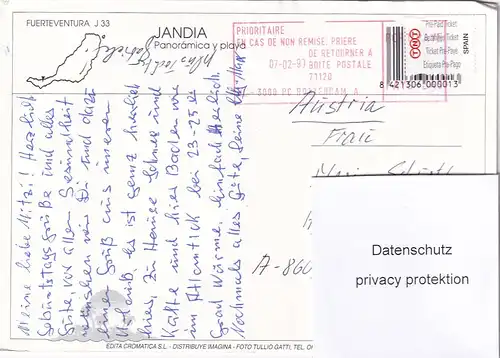 FUERTEVENTURA J 33
JANDIA
Panorámica y playa
PRIORITAIRE
EN CAS DE NON REMISE, PRIERE
DE RETOURNER A
07-02-97 BOITE POSTALE
71120
3008 PC ROTTERDAM A
TNT
Pre-Paid Ticket
Ticket Pre-Payé
Etiqueta Pre-Pago
SPAIN
8 421306 000013
Meine liebe Mitzi! Herzliche
Geburtstagsgrüße und alles
Gute, vor allem Gesundheit
wünschen wir Dir und dazu
einen Gruß aus unserem
Urlaub, es ist ganz herrlich
hier, zu Hause Schnee und
Kälte und hier Baden wir
im Atlantik bei 23-25
Grad Wärme. Einfach herrlich.
Nochmals alles Gute, Deine
Austria
Frau
A-860
Datenschutz
privacy protektion
EDITA CROMATICA S.L. - DISTRIBUYE IMAGINA - FOTO TULLIO GATTI, TEL.